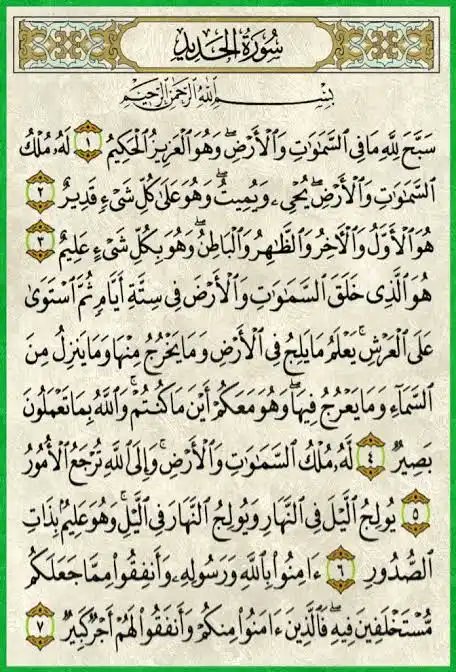 سُورَةُ الحَدِيدِ
بِسْمِ اللَّهِ الرَّحْمَٰنِ الرَّحِيمِ
سَبَّحَ لِلَّهِ مَا فِى ٱلسَّمَٰوَٰتِ وَٱلْأَرْضِ ۖ وَهُوَ ٱلْعَزِيزُ ٱلْحَكِيمُ ١ لَهُۥ مُلْكُ
ٱلسَّمَٰوَٰتِ وَٱلْأَرْضِ ۖ يُحْىِۦ وَيُمِيتُ ۖ وَهُوَ عَلَىٰ كُلِّ شَىْءٍ قَدِيرٌ ٢
هُوَ ٱلْأَوَّلُ وَٱلْءَاخِرُ وَٱلظَّٰهِرُ وَٱلْبَاطِنُ ۖ وَهُوَ بِكُلِّ شَىْءٍ عَلِيمٌ ٣
هُوَ ٱلَّذِى خَلَقَ ٱلسَّمَٰوَٰتِ وَٱلْأَرْضَ فِى سِتَّةِ أَيَّامٍ ثُمَّ ٱسْتَوَىٰ
عَلَى ٱلْعَرْشِ ۚ يَعْلَمُ مَا يَلِجُ فِى ٱلْأَرْضِ وَمَا يَخْرُجُ مِنْهَا وَمَا يَنزِلُ مِنَ
ٱلسَّمَآءِ وَمَا يَعْرُجُ فِيهَا ۖ وَهُوَ مَعَكُمْ أَيْنَ مَا كُنتُمْ ۚ وَٱللَّهُ بِمَا تَعْمَلُونَ
بَصِيرٌ ٤ لَّهُۥ مُلْكُ ٱلسَّمَٰوَٰتِ وَٱلْأَرْضِ ۚ وَإِلَى ٱللَّهِ تُرْجَعُ ٱلْأُمُورُ
٥ يُولِجُ ٱلَّيْلَ فِى ٱلنَّهَارِ وَيُولِجُ ٱلنَّهَارَ فِى ٱلَّيْلِ ۚ وَهُوَ عَلِيمٌۢ بِذَاتِ
ٱلصُّدُورِ ٦ ءَامِنُوا۟ بِٱللَّهِ وَرَسُولِهِۦ وَأَنفِقُوا۟ مِمَّا جَعَلَكُم
مُّسْتَخْلَفِينَ فِيهِ ۖ فَٱلَّذِينَ ءَامَنُوا۟ مِنكُمْ وَأَنفَقُوا۟ لَهُمْ أَجْرٌ كَبِيرٌ ٧